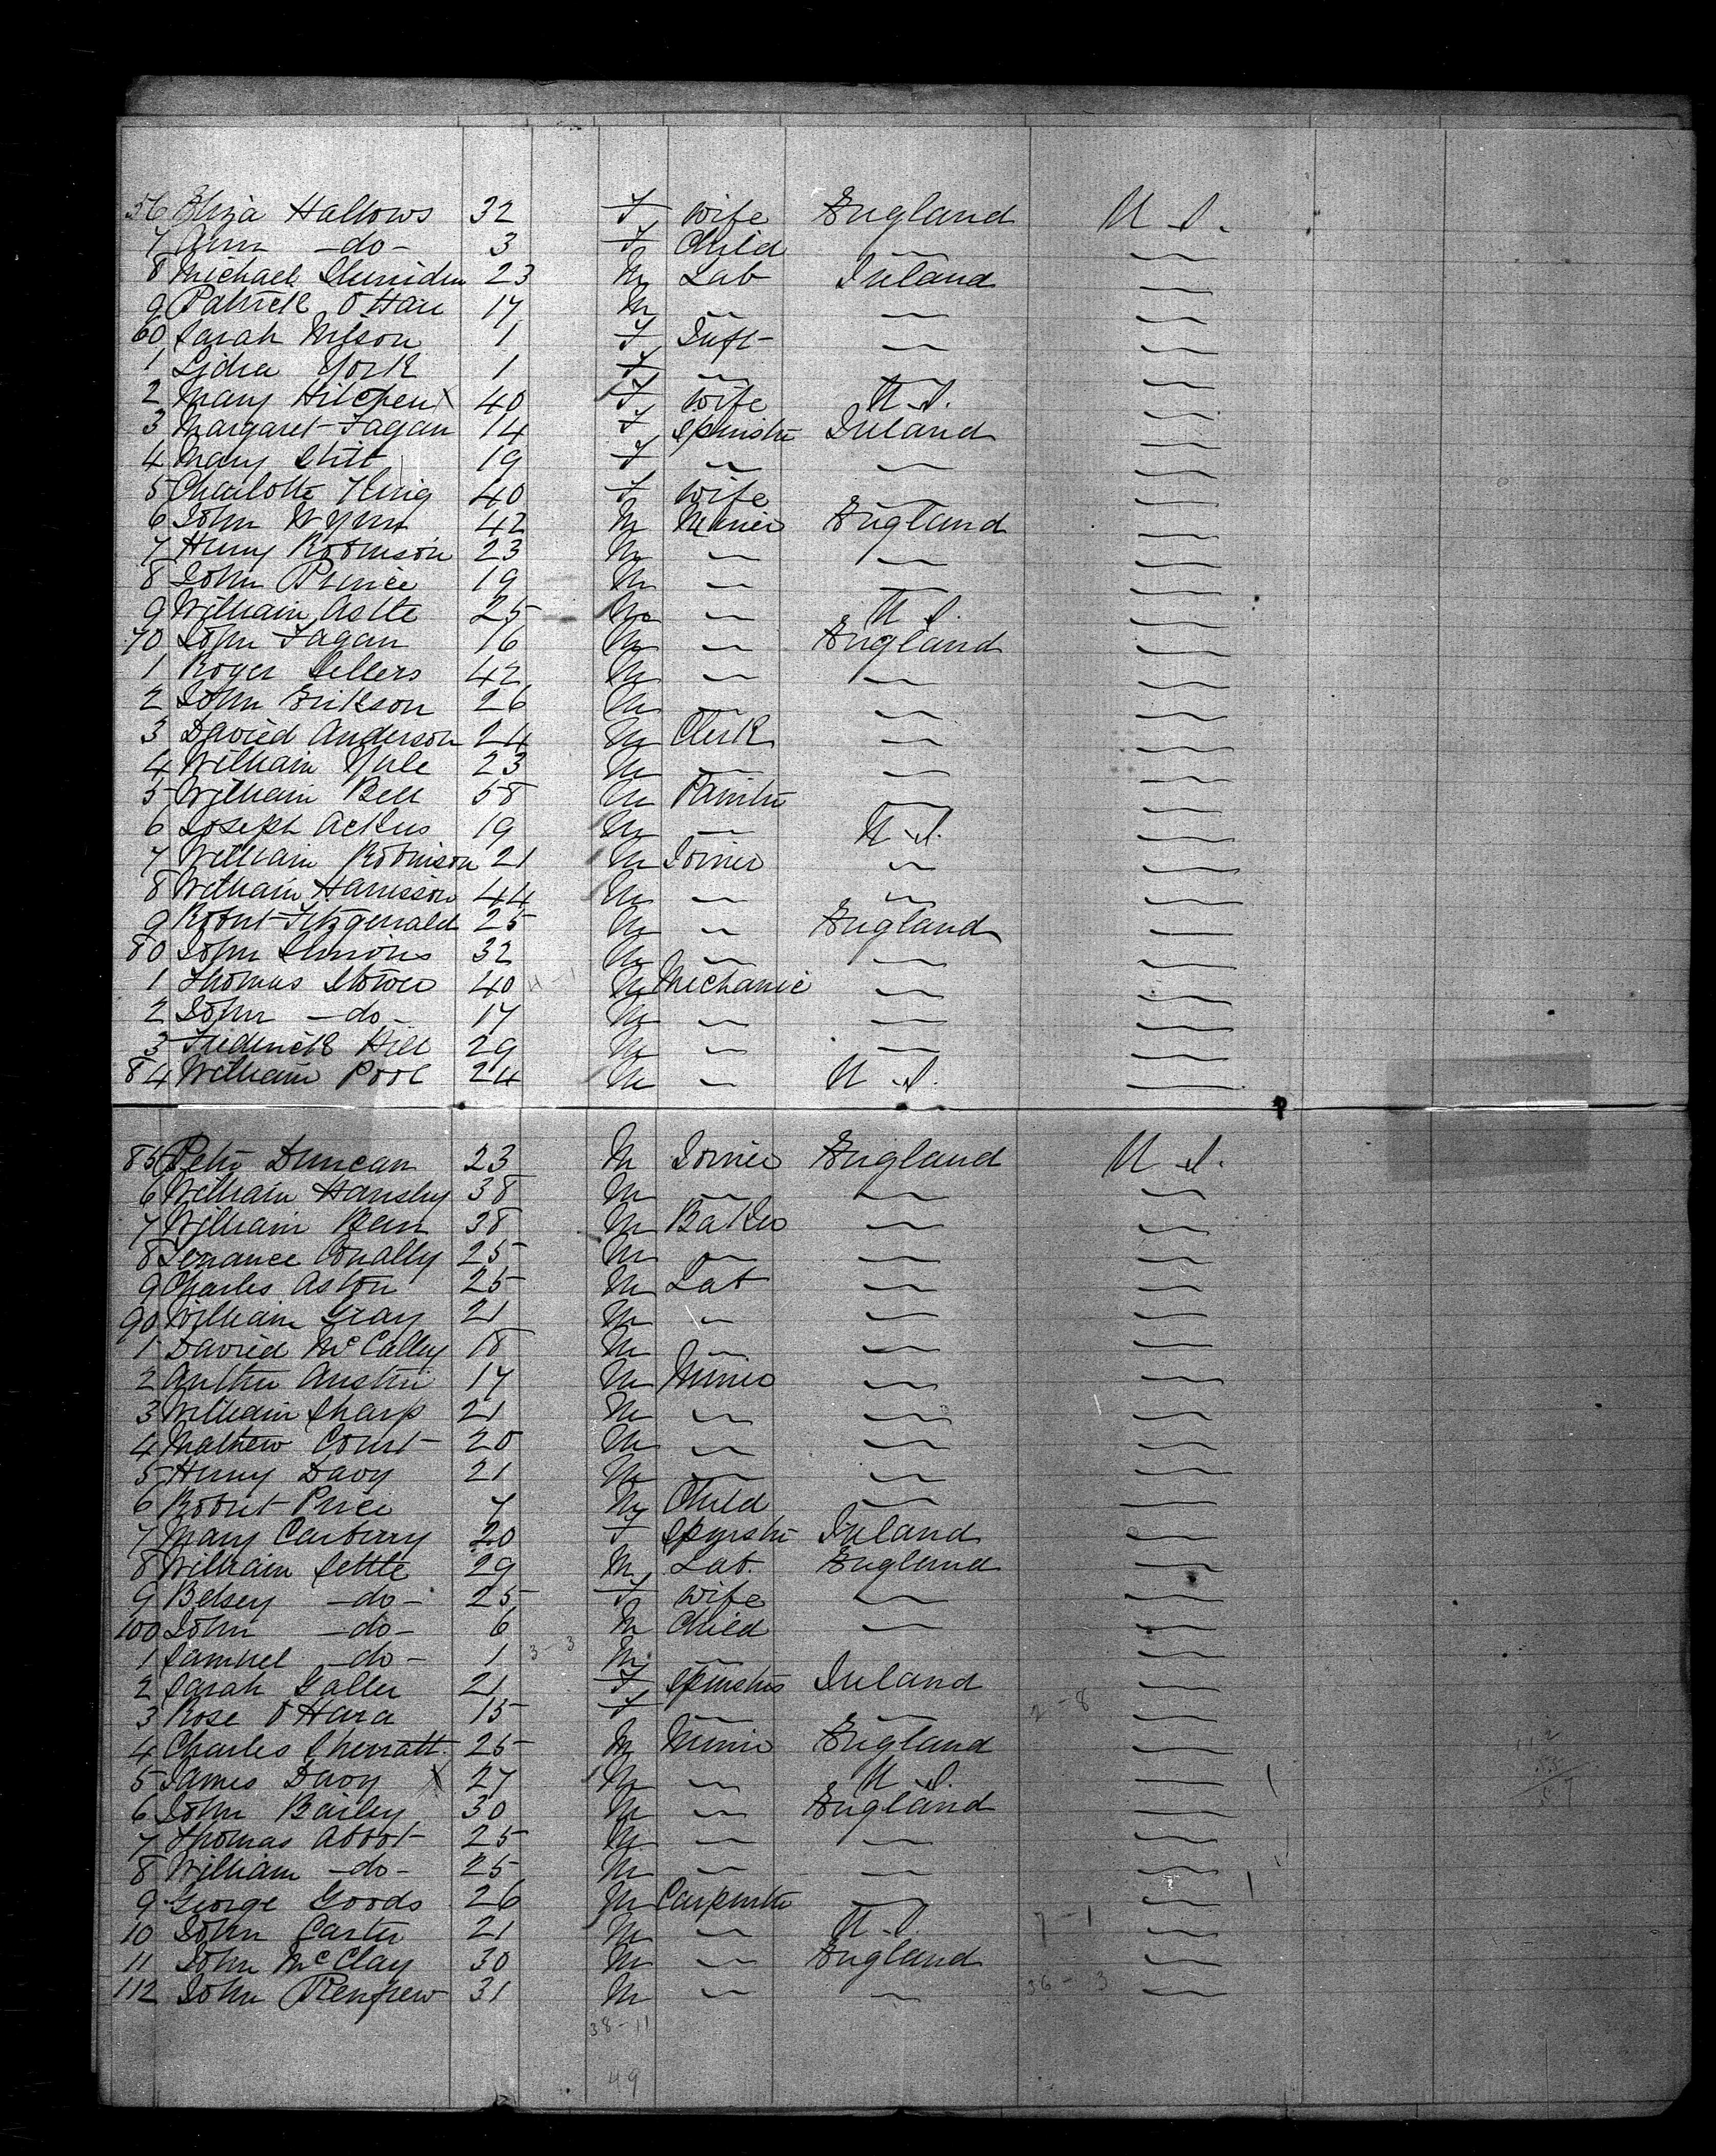 56 Eliza Hallows 32 F wife England U.S.
7 Ann -do- 3 F Child 〃 〃
8 Michael 23 M Lab Ireland 〃
9 Patrick O Hare 17 M 〃 〃 〃
60 Sarah Wilson 1 F Inft 〃 〃
1 Lidia York 1 F 〃 〃 〃
2 Mary 40 F wife U.S. 〃
3 Margaret Fagan 14 F Spinster Ireland 〃
4 Mary Stitt 19 F 〃 〃 〃
5 Charlotte King 40 F wife 〃 〃
6 John Wynn 42 M Miner England 〃
7 Henry Robinson 23 M 〃 〃 〃
8 John Prince 19 M 〃 〃 〃
9 William Astle 25 M 〃 U.S. 〃
70 John Fagan 16 M 〃 England 〃
1 Roger Sellers 42 M 〃 〃 〃
2 John Erikson 26 M 〃 〃 〃
3 David Anderson 24 M Clerk 〃 〃
4 William Yule 23 M 〃 〃 〃
5 William Bell 58 M Painter 〃 〃
6 Joseph Ackers 19 M 〃 U.S. 〃
7 William Robinson 21 M Joiner 〃 〃
8 William Harrisson 44 M 〃 〃 〃
9 Robert Fitzgerald 25 M 〃 England 〃
80 John Simons 32 M 〃 〃 〃
1 Thomas Stower 40 M Mechanic 〃 〃
2 John -do- 17 M 〃 〃 〃
3 Frederick Hill 29 M 〃 〃 〃
84 William Pool 24 M 〃 U.S. 〃
85 Peter Duncan 23 M Joiner England U.S.
6 William Hansby 38 M 〃 〃 〃
7 William Benn 38 M Baker 〃 〃
8 Terrance Conally 25 M 〃 〃 〃
9 Charles Aston 25 M Lab 〃 〃
90 William Gray 21 M 〃 〃 〃
1 David McCalley 18 M 〃 〃 〃
2 Arther Austin 17 M Miner 〃 〃
3 William Sharp 21 M 〃 〃 〃
4 Mathew Court 20 M 〃 〃 〃
5 Henry Davy 21 M 〃 〃 〃
6 Robert Price 7 M Child 〃 〃
7 Mary Carberry 20 F Spinster Ireland 〃
8 William Settle 29 M Lab. England 〃
9 Betsey -do- 25 F wife 〃 〃
100 John -do- 6 M Child 〃 〃
1 Samuel -do- 1 3-3 M 〃 〃
2 Sarah Galler 21 F Spinster Ireland 〃
3 Rose O Hara 15 F 〃 〃 2-8 〃
4 Charles Sherratt 25 M Miner England 〃 112
5 James Davy X 27 M 〃 U.S. 〃 55
6 John Bailey 30 M 〃 England 〃 57
7 Thomas Abbot 25 M 〃 〃 〃
8 William -do- 25 M 〃 〃 〃
9 George Goods 26 M Carpenter 〃 〃
10 John Carter 21 M 〃 U.S. 7-1 〃
11 John McClay 30 M 〃 England 〃
112 John Renfrew 31 M 〃 〃 36-3 〃
38-11
49